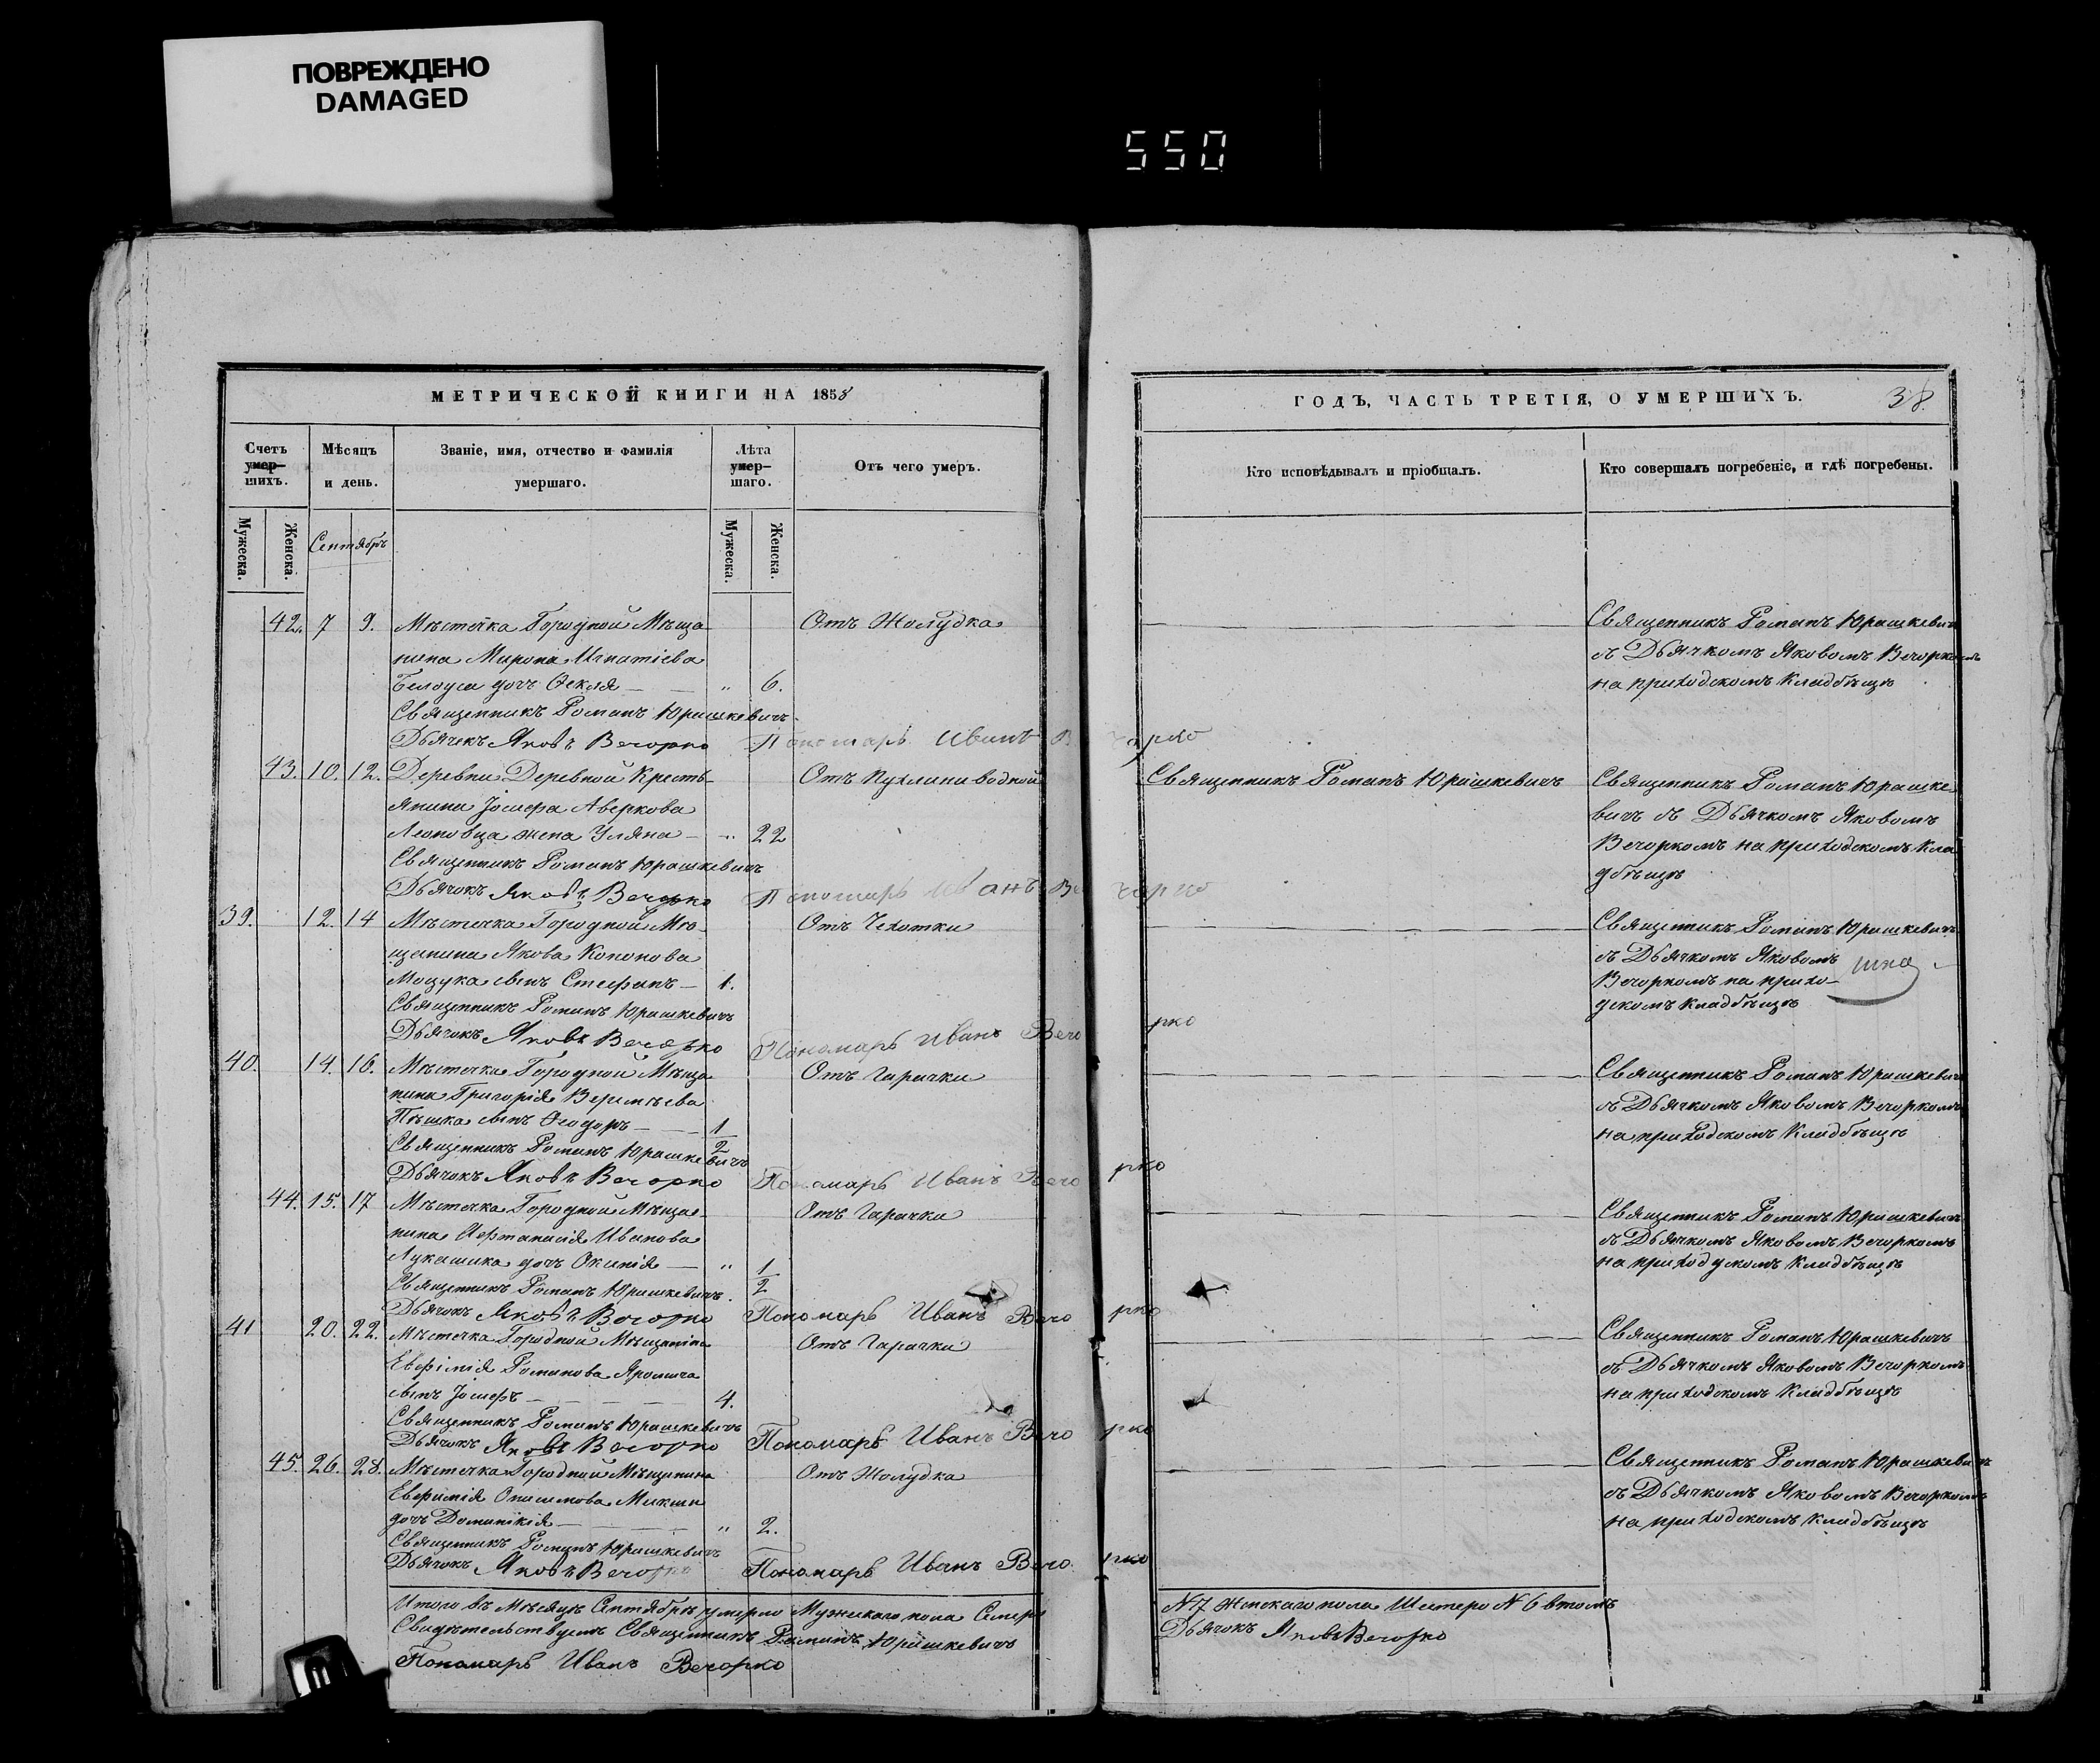 ПОВРЕЖДЕНО
DAMAGED
550
МЕТРИЧЕСКОЙ КНИГИ НА 1858
Счетъ умер- шихъ.
Мѣсяцъ и день.
Званіе, имя, отчество и фамилія умершаго.
Лѣта умер- шаго.
Отъ чего умеръ.
Мужеска.
Женска.
Сентябрь
Мужеска.
Женска.
42. 7 9. Мѣстечка Городной Мѣща Отъ Желудка
нина Мирона Игнатіева
Белоуса дочь Ѳекля — „ 6.
Священникъ Романъ Юрашкевичъ
Дьячекъ Яковъ Вечорко Пономарь Иванъ Вечорко
43. 10. 12. Деревни Деревной Кресть- Отъ Пухлини водной
янина Іосифа Аверкова
Леоновца жена Уляна — „ 22
Священникъ Романъ Юрашкевичъ
Дьячокъ Яковъ Вечорко Пономарь Иванъ Вечорко
39. 12. 14 Мѣстечка Городной Мѣ- Отъ Чехотки
щанина Якова Кононова
Мощука сынъ Стефанъ — 1.
Священникъ Романъ Юрашкевичъ
Дьячокъ Яковъ Вечорко Пономарь Иванъ Вечорко
40. 14. 16. Мѣстечка Городной Мѣща Отъ Гарачки
нина Григорія Веремѣева
Пѣшка сынъ Ѳеодоръ — 1/2
Священникъ Романъ Юрашкевичъ
Дьячокъ Яковъ Вечорко Пономарь Иванъ Вечорко
44. 15. 17 Мѣстечка Городной Мѣща- Отъ Гарачки
нина Иванова
Лукашика дочь — „ 1/2
Священникъ Романъ Юрашкевичъ.
Дьячокъ Яковъ Вечорко Пономарь Иванъ Вечорко
41 20. 22. Мѣстечка Городной Мѣщанина Отъ Гарачки
Евфимія Романова
сынъ Іосифъ — 4.
Священникъ Романъ Юрашкевичъ
Дьячокъ Яковъ Вечорко Пономарь Иванъ Вечорко
45. 26. 28. Мѣстечка Городной Мѣщанина Отъ Желудка
Евфимія Онисимова
дочь Доминикія — „ 2.
Священникъ Романъ Юрашкевичъ
Дьячокъ Яковъ Вечорко Пономарь Иванъ Вечорко
Итого въ Мѣсяцѣ Сентябрѣ умерло Мужескаго пола Семеро
Свидѣтельствуемъ Священникъ Романъ Юрашкевичъ
Пономарь Иванъ Вечорко
ГОДЪ, ЧАСТЬ ТРЕТІЯ, О УМЕРШИХЪ.
38.
Кто исповѣдывалъ и пріобщалъ.
Кто совершалъ погребеніе, и гдѣ погребены.
Священникъ Романъ Юрашкевичъ
съ Дьячкомъ Яковомъ Вечоркомъ
на приходскомъ кладбѣщѣ
Священникъ Романъ Юрашкевичъ
Священникъ Романъ Юрашке
вичъ съ Дьячкомъ Яковомъ
Вечоркомъ на приходскомъ кла
дбѣщѣ
Священникъ Романъ Юрашкевичъ
съ Дьячкомъ Яковомъ
Вечоркомъ на прихо-
дскомъ кладбѣщѣ
Священникъ Романъ Юрашкевичъ
съ Дьячкомъ Яковомъ Вечоркомъ
на приходскомъ кладбѣщѣ
Священникъ Романъ Юрашкевичъ
съ Дьячкомъ Яковомъ Вечоркомъ
на приходскомъ кладбѣщѣ
Священникъ Романъ Юрашкевичъ
съ Дьячкомъ Яковомъ Вечоркомъ
на приходскомъ кладбѣщѣ
Священникъ Романъ Юрашкевичъ
съ Дьячкомъ Яковомъ Вечоркомъ
на приходскомъ кладбѣщѣ
N 7 Женскаго пола Шестеро N 6 втомъ
Дьячокъ Яковъ Вечорко